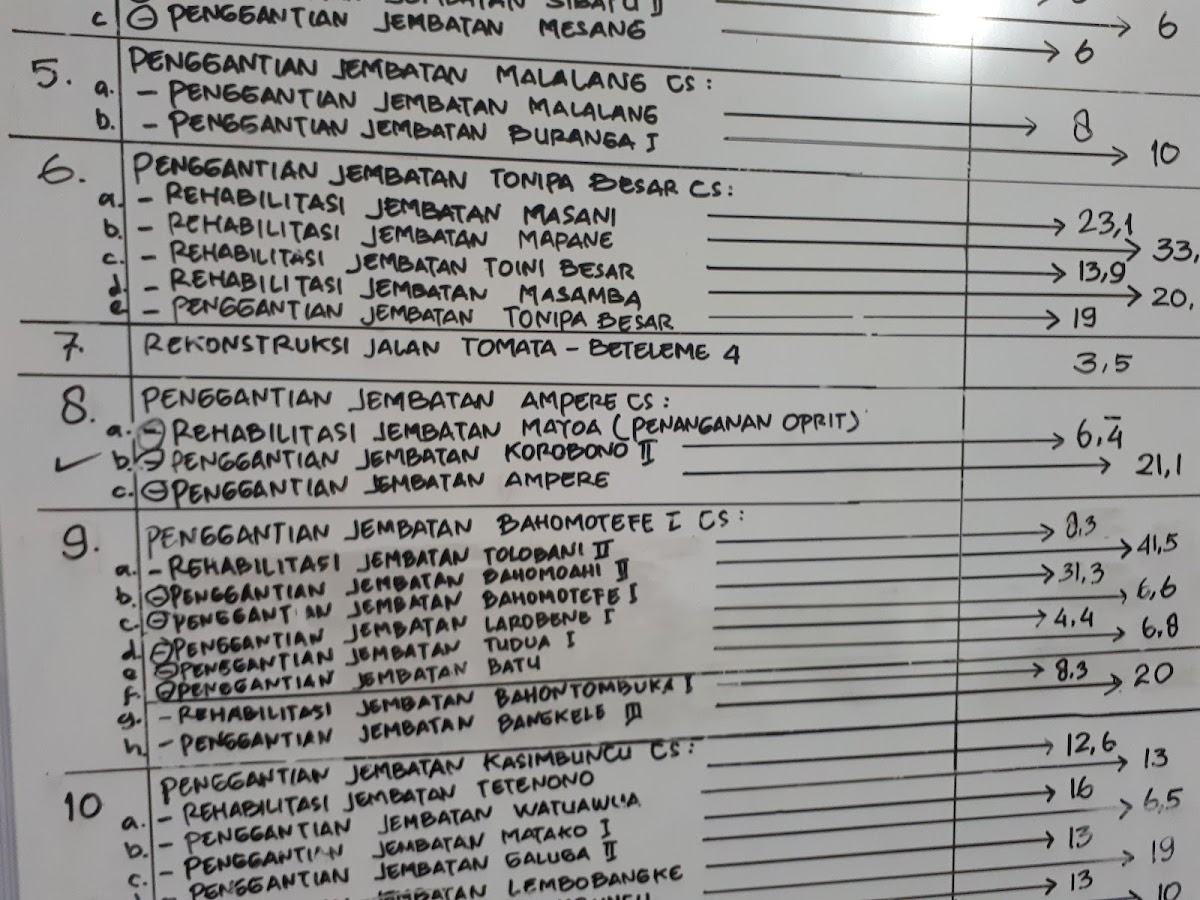 JEMBATAN SIBATU II
c ⊖ PENGGANTIAN JEMBATAN MESANG → 6
→ 6
5. PENGGANTIAN JEMBATAN MALALANG CS :
a. - PENGGANTIAN JEMBATAN MALALANG → 8
b. - PENGGANTIAN JEMBATAN BURANGA I → 10
6. PENGGANTIAN JEMBATAN TONIPA BESAR CS :
a. - REHABILITASI JEMBATAN MASANI → 23,1
b. - REHABILITASI JEMBATAN MAPANE → 33,
c. - REHABILITASI JEMBATAN TOINI BESAR → 13,9
d. - REHABILITASI JEMBATAN MASAMBA → 20,
e - PENGGANTIAN JEMBATAN TONIPA BESAR → 19
7. REKONSTRUKSI JALAN TOMATA - BETELEME 4 3,5
8. PENGGANTIAN JEMBATAN AMPERE CS :
a. ⊖ REHABILITASI JEMBATAN MAYOA (PENANGANAN OPRIT)
✓ b. ⊖ PENGGANTIAN JEMBATAN KOROBONO II → 6,4
c. ⊖ PENGGANTIAN JEMBATAN AMPERE → 21,1
9. PENGGANTIAN JEMBATAN BAHOMOTEFE I CS :
a. - REHABILITASI JEMBATAN TOLOBANI II → 8,3
b. ⊖ PENGGANTIAN JEMBATAN BAHOMOAHI II → 41,5
c. ⊖ PENGGANTIAN JEMBATAN BAHOMOTEFE I → 31,3
d ⊖ PENGGANTIAN JEMBATAN LAROBENE I → 6,6
e ⊖ PENGGANTIAN JEMBATAN TUDUA I → 4,4
f. ⊖ PENGGANTIAN JEMBATAN BATU → 6,8
g. - REHABILITASI JEMBATAN BAHONTOMBUKA I → 8,3
h. - PENGGANTIAN JEMBATAN BANGKELE III → 20
10 PENGGANTIAN JEMBATAN KASIMBUNCU CS :
a. - REHABILITASI JEMBATAN TETENONO → 12,6
b. - PENGGANTIAN JEMBATAN WATUAWUA → 13
c. - PENGGANTIAN JEMBATAN MATAKO I → 16
- PENGGANTIAN JEMBATAN GALUGA II → 6,5
JEMBATAN LEMBOBANGKE → 13
→ 19
→ 13
10